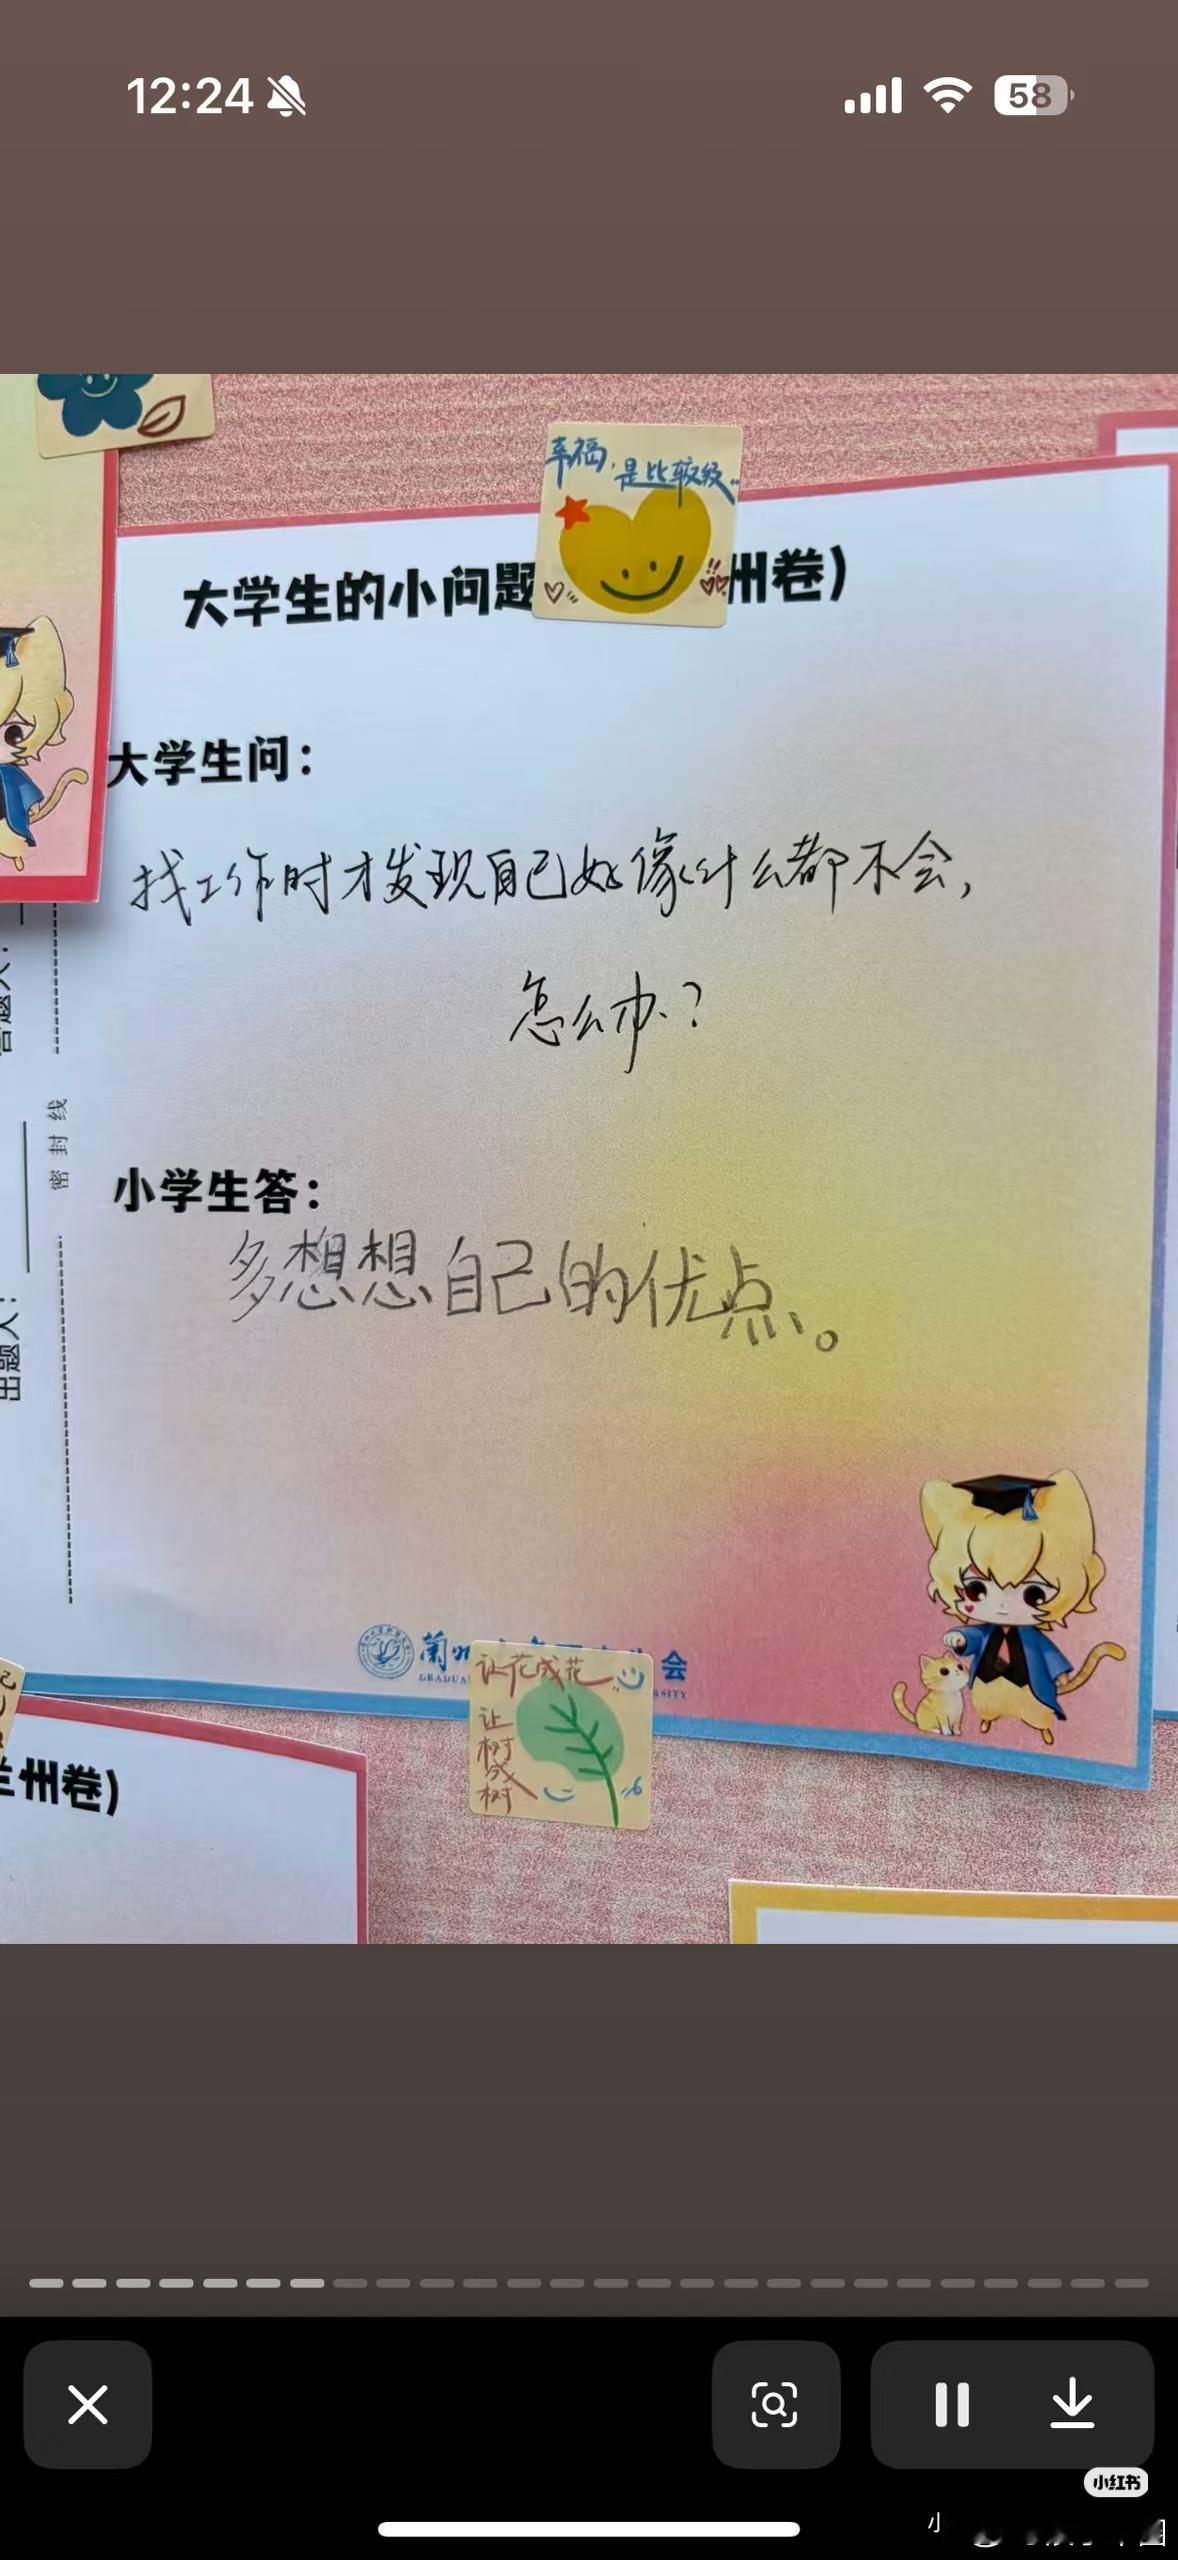 12:24
58
幸福,是比较级
大学生的小问题
州卷)
大学生问：
找工作时才发现自己好像什么都不会，
怎么办？
密封线
小学生答：
多想想自己的优点。
出题人：
会
GRADUA
SITY
让花成花
让树成树
州卷)
小红书